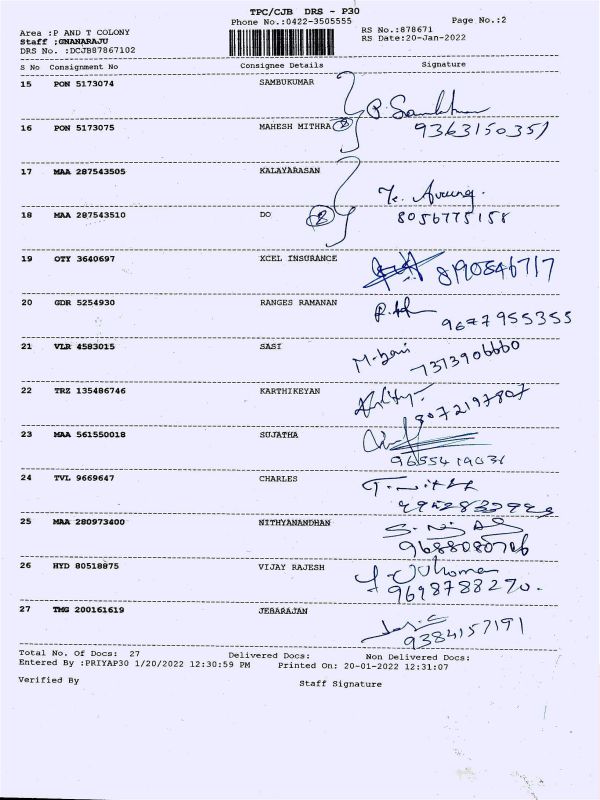 TPC/CJB DRS - P30
Phone No.:0422-3505555
Page No.:2
Area :P AND T COLONY
RS No.:878671
Staff :GNANARAJU
RS Date:20-Jan-2022
DRS No. :DCJB87867102
S No Consignment No Consignee Details Signature
15 PON 5173074 SAMBUKUMAR
16 PON 5173075 MAHESH MITHRA
9363150351
17 MAA 287543505 KALAYARASAN
18 MAA 287543510 DO
8056775158
19 OTY 3640697 XCEL INSURANCE
8190846717
20 GDR 5254930 RANGES RAMANAN
9677955355
21 VLR 4583015 SASI
7373906660
22 TRZ 135486746 KARTHIKEYAN
8072197807
23 MAA 561550018 SUJATHA
24 TVL 9669647 CHARLES
25 MAA 280973400 NITHYANANDHAN
26 HYD 80518875 VIJAY RAJESH
9698788270.
27 TMG 200161619 JEBARAJAN
9384157191
Total No. Of Docs: 27 Delivered Docs: Non Delivered Docs:
Entered By :PRIYAP30 1/20/2022 12:30:59 PM Printed On: 20-01-2022 12:31:07
Verified By Staff Signature